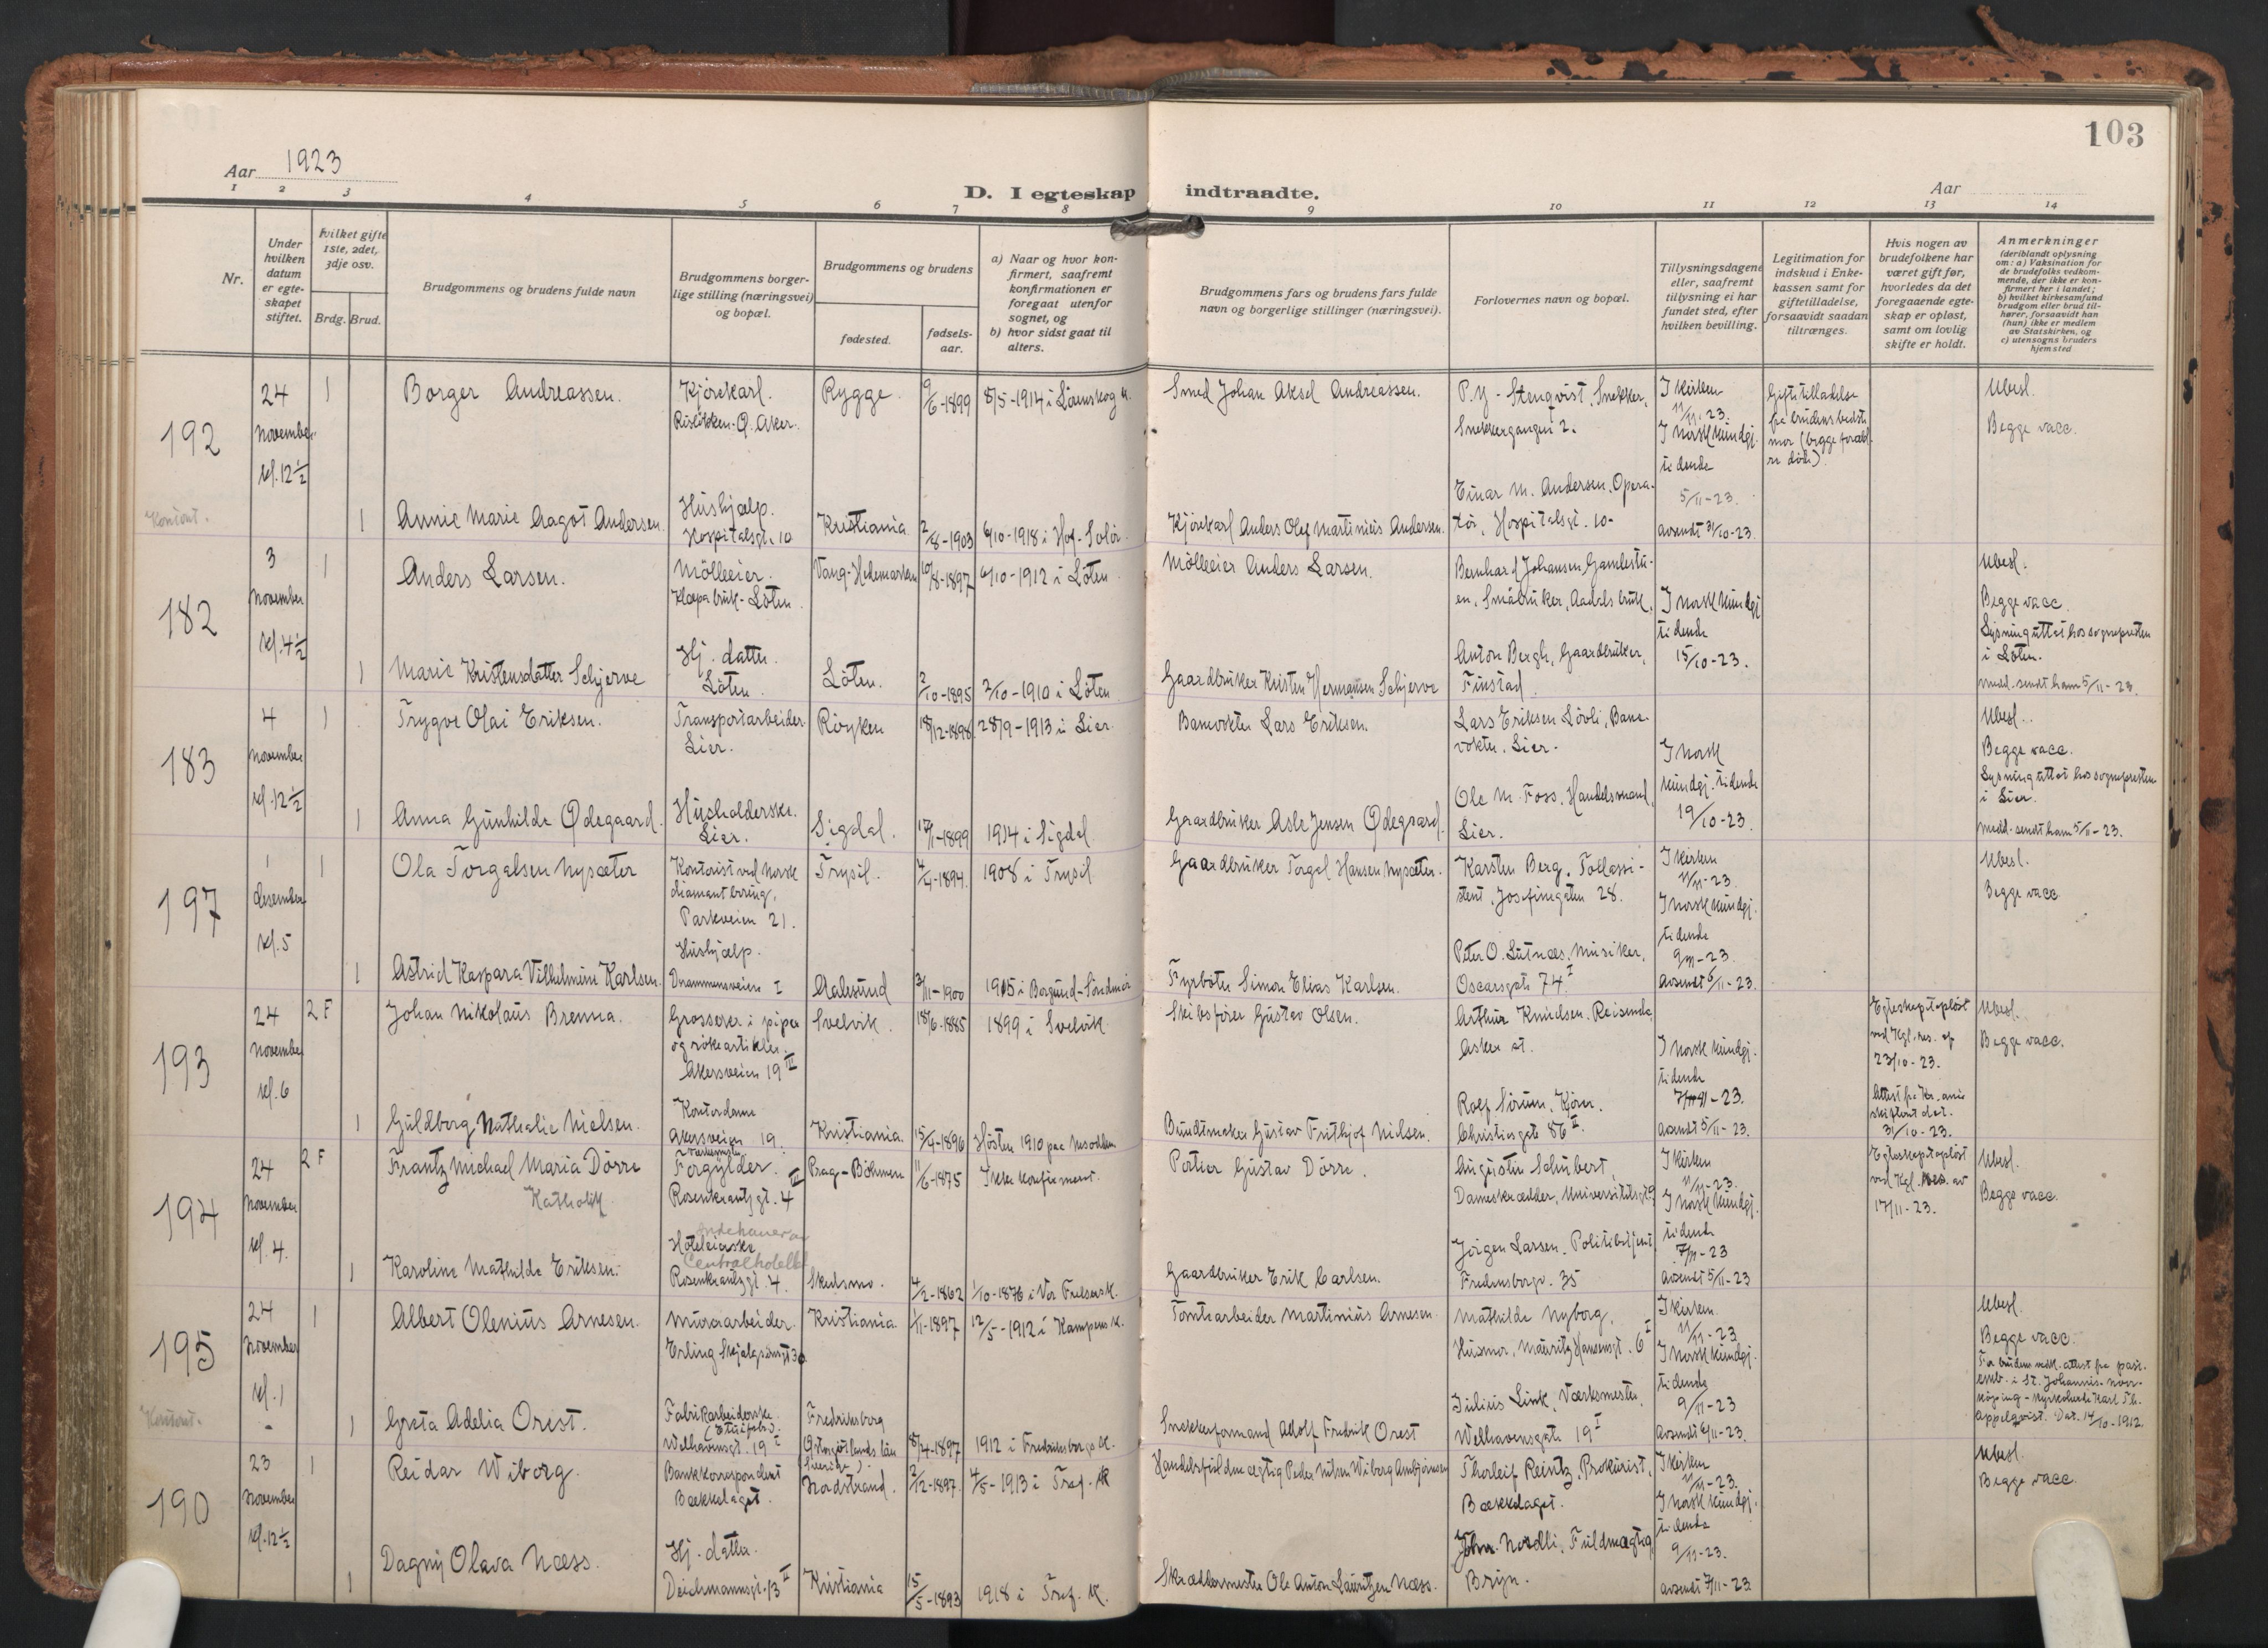 103
Aar 1923
D. I egteskap indtraadte.
Aar
1 2 3 4 5 6 7 8 9 10 11 12 13 14
Nr.
Under hvilken datum er egte- skapet stiftet.
Hvilket gifte 1ste, 2det, 3dje osv.
Brdg. Brud.
Brudgommens og brudens fulde navn
Brudgommens borger- lige stilling (næringsvei) og bopæl.
Brudgommens og brudens
fødested.
fødsels- aar.
a) Naar og hvor kon- firmert, saafremt konfirmationen er foregaat utenfor sognet, og
b) hvor sidst gaat til alters.
Brudgommens fars og brudens fars fulde navn og borgerlige stillinger (næringsvei).
Forlovernes navn og bopæl.
Tillysningsdagene eller, saafremt tillysning ei har fundet sted, efter hvilken bevilling.
Legitimation for indskud i Enke- kassen samt for giftetilladelse, forsaavidt saadan tiltrænges.
Hvis nogen av brudefolkene har været gift før, hvorledes da det foregaaende egte- skap er opløst, samt om lovlig skifte er holdt.
Anmerkninger (deriblandt oplysning om: a) Vaksination for de brudefolks vedkom- mende, der ikke er kon- firmert her i landet; b) hvilket kirkesamfund brudgom eller brud til- hører, forsaavidt han (hun) ikke er medlem av Statskirken, og c) utensogns bruders hjemsted
192
24 november kl. 12½
1
Borger Andreassen.
Kjørekarl. Risløkken. Ø. Aker.
Rygge.
9/6-1899
8/5-1914 i Lørenskog k.
Smed Johan Aksel Andreassen.
P. Y. Stenqvist, Snekker, Snekkergangen 2.
I kirken 11/11-23. I norsk kundgj. tidende 5/11-23. avsendt 31/10-23.
Giftetilladelse fra brudens bedste- mor (begge foræld- re døde).
Ubesl.
Begge vacc.
Kontant.
1
Annie Marie Aagot Andersen.
Hushjælp. Hospitalsgt. 10
Kristiania
2/8-1903
6/10-1918 i Hof-Solør.
Kjørekarl Anders Olaf Martinius Andersen.
Einar M. Andersen, Opera- tør, Hospitalsgt. 10-
182
3 november kl. 4½
1
Anders Larsen.
Mølleeier. Klæpa bruk-Løten.
Vang-Hedemarken
10/8-1897
6/10-1912 i Løten.
Mølleeier Anders Larsen.
Bernhard Johansen Gamlestu- en, Småbruker, Aadals bruk,
I norsk kundgj tidende 15/10-23.
Ubesl.
Begge vacc.
Lysning uttat hos sognepresten i Løten.
medd. sendt ham 5/11-23.
1
Marie Kristensdatter Schjerve
Hj. datter. Løten.
Løten.
2/10-1895
2/10-1910 i Løten
Gaardbruker Kristen Hermansen Schjerve
Anton Bergh, Gaardbruker, Finstad.
183
4 november kl. 12½
1
Trygve Olai Eriksen.
Transportarbeider. Lier.
Røyken
18/12-1898
28/9-1913 i Lier.
Banevokter Lars Eriksen.
Lars Eriksen Løvli, Bane- vokter, Lier.
I norsk kundgj. tidende 19/10-23.
Ubesl.
Begge vacc.
Lysning uttat hos sognepresten i Lier.
medd. sendt ham 5/11-23.
1
Anna Gunhilde Ødegaard.
Husholderske. Lier.
Sigdal.
17/1-1899
1914 i Sigdal.
Gaardbruker Asle Jensen Ødegaard.
Ole M. Foss, Handelsmand, Lier.
197
1 desember kl. 5
1
Ola Torgalsen Nysæter
Kontorist ved Norsk diamantboring, Parkveien 21.
Trysil.
4/4-1894.
1908 i Trysil.
Gaardbruker Torgal Hansen Nysæter.
Karsten Berg, Toldassi- stent, Josefinegaten 28.
I kirken 11/11-23. I norsk kundgj. tidende 9/11-23. Avsendt 6/11-23.
Ubesl.
Begge vacc
1
Astrid Kaspara Vilhelmine Karlsen.
Hushjælp. Drammensveien I
Aalesund
3/11-1900
1915 i Borgund-Søndmør
Fyrbøter Simon Elias Karlsen.
Peter O. Lutnæs, Musiker, Oscarsgate 74 I.
193
24 november kl. 6
2 F
Johan Nikolaus Brenna.
Grosserer i piper og røkeartikler. Akersveien 19 IV
Svelvik.
18/6-1885
1899 i Svelvik.
Skibsfører Gustav Olsen.
Arthur Knudsen, Reisende, Asker st.
I norsk kundgj. tidende 7/11-23. avsendt 5/11-23.
Egteskapet opløst ved Kgl. res. af 23/10-23.
31/10-23.
Ubesl.
Begge vacc.
1
Guldborg Nathalie Nielsen.
Kontordame Akersveien 19.
Kristiania.
15/4-1896
Høsten 1910 paa Nesodden
Buntmaker Gustav Frithjof Nielsen.
Rolf Sørum, Kjører. Christiesgate 86 II.
194
24 november kl. 4.
2 F
Frantz Michael Maria Dörre
Katholik
Forgylder. Rosenkrantzgt. 4 III
Prag-Böhmen
11/6-1875
Ikke konfirmert.
Portier Gustav Dörre.
Augustin Schubert, Dameskrædder, Universitetsgt 9
I kirken 11/11-23. I norsk kundgj. tidende 7/11-23 avsendt 5/11-23
Egteskapet opløst ved Kgl. res. av 17/11-23.
Ubesl.
Begge vacc.
1
Karoline Mathilde Eriksen.
Hoteleierske indehaver av Centralhotellet Rosenkrantzgt. 4.
Skedsmo.
4/2-1862
1/10-1876 i Vor Frelsersk.
Gaardbruker Erik Carlsen.
Jörgen Larsen, Politibetjent, Fredensborgv. 35
195
24 november kl. 1
1
Albert Olenius Arnesen.
Murarbeider. Erling Skjalgsønsgt 30
Kristiania.
1/11-1897
12/5-1912 i Kampens k.
Tomtearbeider Martinius Arnesen.
Mathilde Nyborg, Husmor, Mauritz Hansensgt. 6 I
I kirken. 11/11-23 I norsk kundgj. tidende 9/11-23 Avsendt 6/11-23.
Ubesl.
Begge vacc.
For brudens vedk. attest fra past. emb. i St. Johannis-norr- köping-Kyrkoherde Karl Th. Appelqvist. Dat. 14/10-1912.
Kontant.
1
Greta Adelia Orest.
Fabrikarbeiderske. (Etuifabr.) Welhavensgt. 19 I
Fredriksborg Østergötlands län (Sverige).
8/4-1897
1912 i Fredriksbergs k.
Snekkerformand Adolf Fredrik Orest
Julius Link, Værksmester, Welhavensgate 19 I
190
23 november kl. 12½
1
Reidar Wiborg.
Bankkorrespondent Bækkelaget.
Nordstrand.
2/12-1897.
4/5-1913 i Tref. K
Thorleif Reintz, Prokurist, Bækkelaget.
I kirken 11/11-23. I norsk kundgj. tidende 9/11-23. avsendt 7/11-23
Ubesl.
Begge vacc.
1
Dagny Olava Næss.
Hj. datter. Deichmannsgt. 13 II
Kristiania
15/5-1893
1918 i Tref. K.
Skræddermester Ole Anton Lauritzen Næss.
Johan Nordli, Fuldmægtig, Bryn.